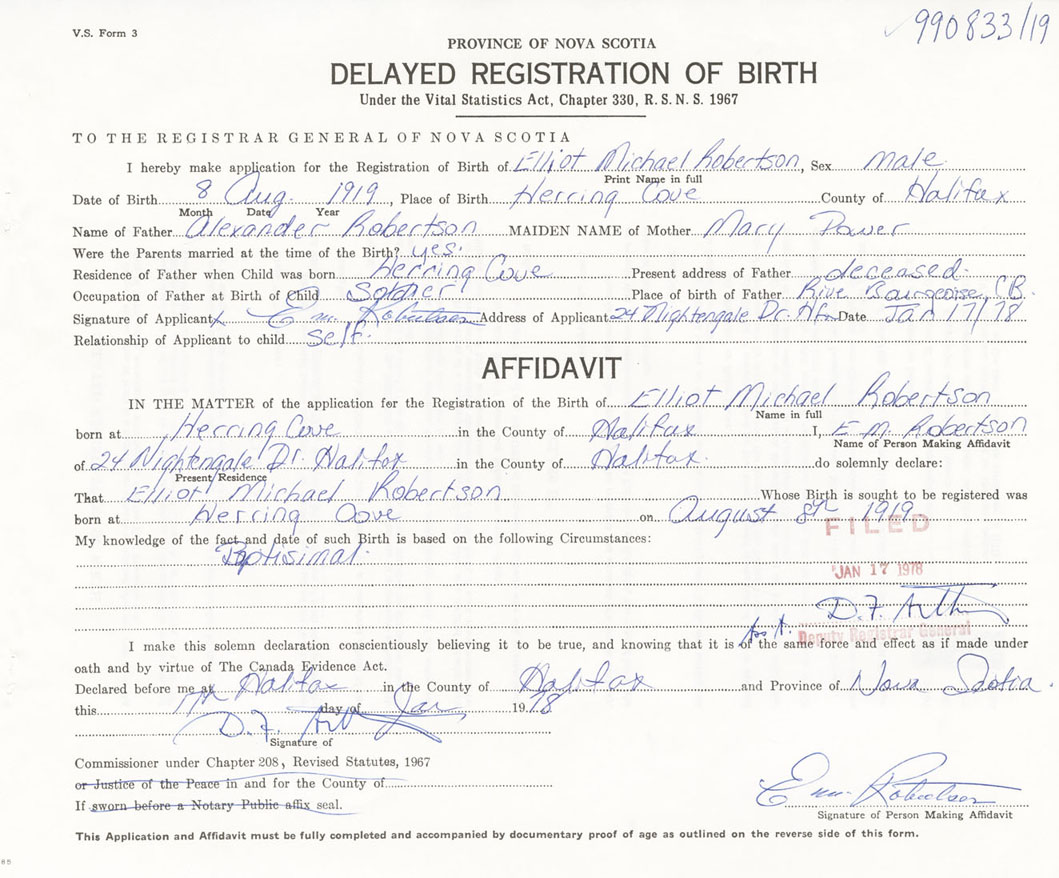 V.S. Form 3
990833/19
PROVINCE OF NOVA SCOTIA
DELAYED REGISTRATION OF BIRTH
Under the Vital Statistics Act, Chapter 330, R.S.N.S. 1967
TO THE REGISTRAR GENERAL OF NOVA SCOTIA
I hereby make application for the Registration of Birth of Elliot Michael Robertson, Sex male
Print Name in full
Date of Birth 8 Aug. 1919, Place of Birth Herring Cove County of Halifax
Month Date Year
Name of Father Alexander Robertson MAIDEN NAME of Mother Mary Power
Were the Parents married at the time of the Birth? yes.
Residence of Father when Child was born Herring Cove Present address of Father deceased.
Occupation of Father at Birth of Child Soldier Place of birth of Father Rive Bourgeoise, CB.
Signature of Applicant x E m. Robertson Address of Applicant 24 Nightengale Dr. Hfx Date Jan 17/78
Relationship of Applicant to child self.
AFFIDAVIT
IN THE MATTER of the application for the Registration of the Birth of Elliot Michael Robertson
Name in full
born at Herring Cove in the County of Halifax I, E M. Robertson
Name of Person Making Affidavit
of 24 Nightengale Dr. Halifax in the County of Halifax. do solemnly declare:
Present Residence
That Elliot Michael Robertson Whose Birth is sought to be registered was
born at Herring Cove on August 8th 1919
FILED
My knowledge of the fact and date of such Birth is based on the following Circumstances:
Baptisimal.
JAN 17 1978
D.F. Arth
Ass't. Deputy Registrar General
I make this solemn declaration conscientiously believing it to be true, and knowing that it is of the same force and effect as if made under
oath and by virtue of The Canada Evidence Act.
Declared before me at Halifax in the County of Halifax and Province of Nova Scotia.
this 17th day of Jan 1978
D.F. Arth
Signature of
Commissioner under Chapter 208, Revised Statutes, 1967
or Justice of the Peace in and for the County of
If sworn before a Notary Public affix seal.
E m. Robertson
Signature of Person Making Affidavit
This Application and Affidavit must be fully completed and accompanied by documentary proof of age as outlined on the reverse side of this form.